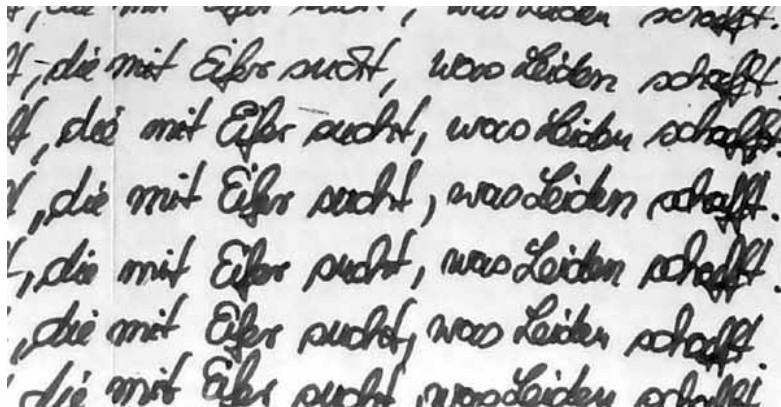 die mit Eifer sucht, was Leiden schafft.
t, die mit Eifer sucht, was Leiden schafft.
t, die mit Eifer sucht, was Leiden schafft.
t, die mit Eifer sucht, was Leiden schafft.
t, die mit Eifer sucht, was Leiden schafft.
, die mit Eifer sucht, was Leiden schafft
die mit Eifer sucht, was Leiden schafft